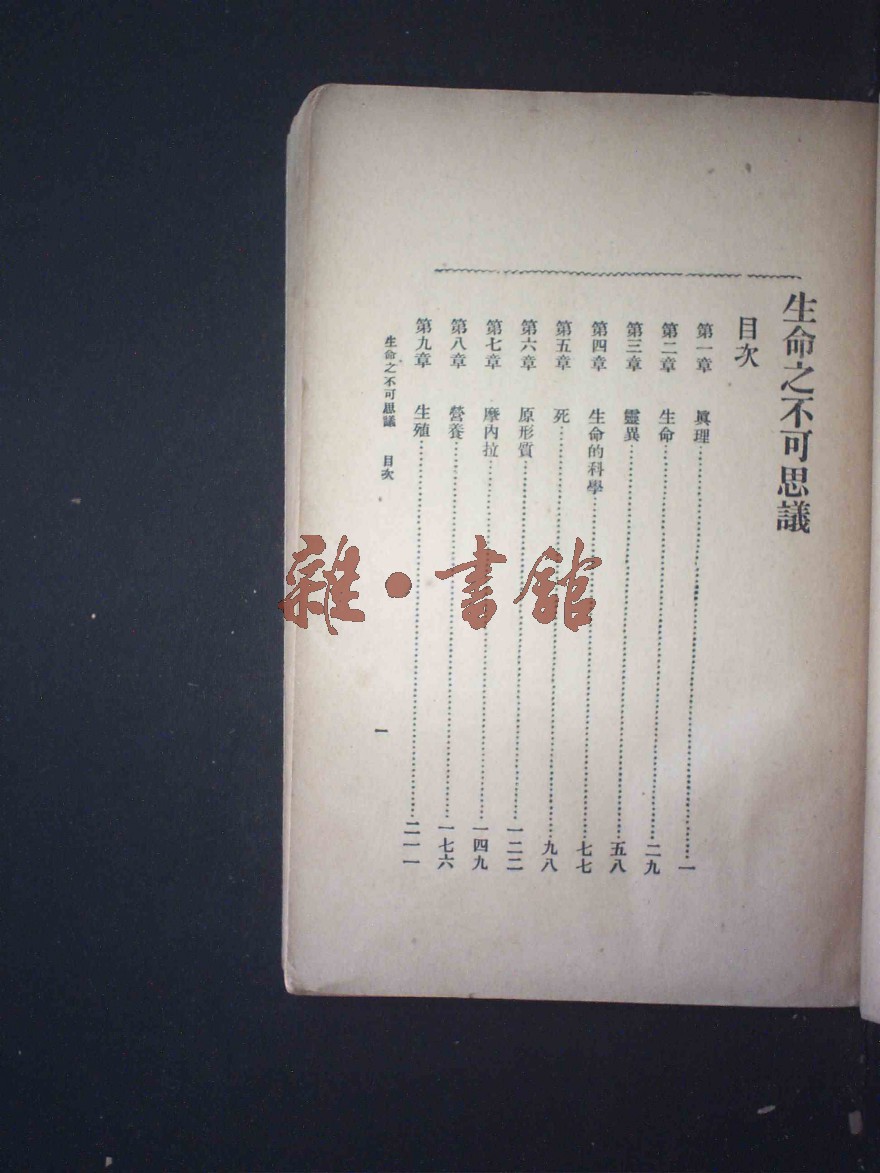 生命之不可思議
目次
第一章 眞理……一
第二章 生命……二九
第三章 靈異……五八
第四章 生命的科學……七七
第五章 死……九八
第六章 原形質……一二二
第七章 摩內拉……一四九
第八章 營養……一七六
第九章 生殖……二一一
生命之不可思議 目次
一
雜·書館